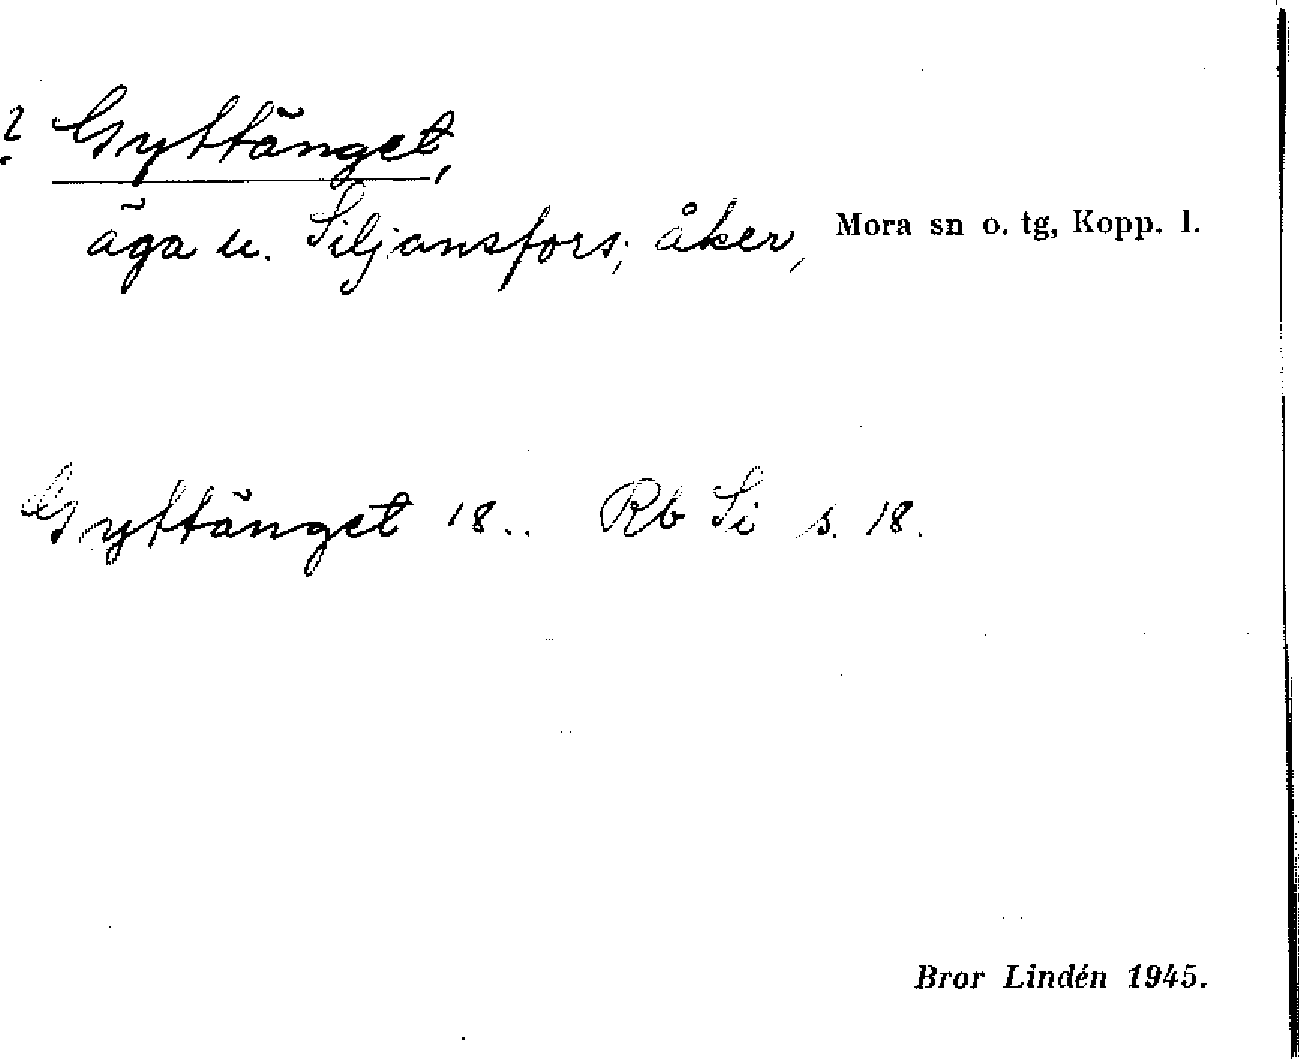 ? Gyttänget,
äga u. Siljansfors; åker, Mora sn o. tg, Kopp. l.
Gyttänget 18.. Rb Si s. 18.
Bror Lindén 1945.